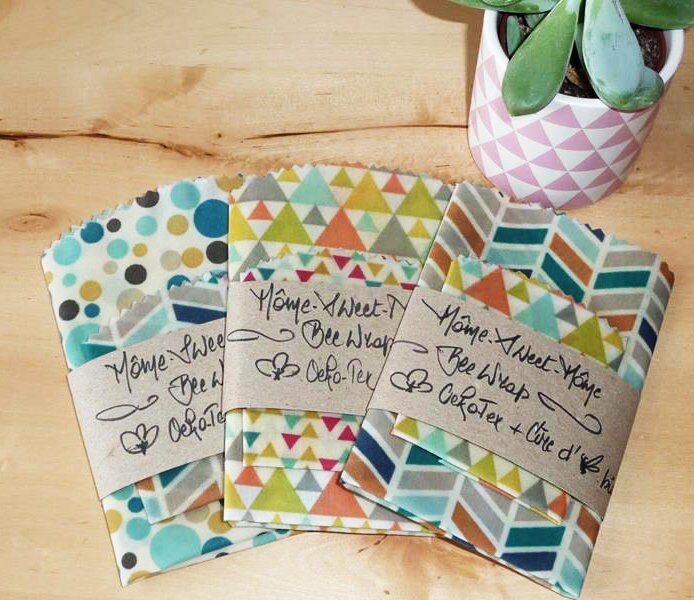 Môme-Sweet
Bee Wrap
OekoTex
Môme-Sweet-
Bee Wrap
Oeko-Tex
Môme-Sweet-Môme
Bee Wrap
OekoTex + Cire d'